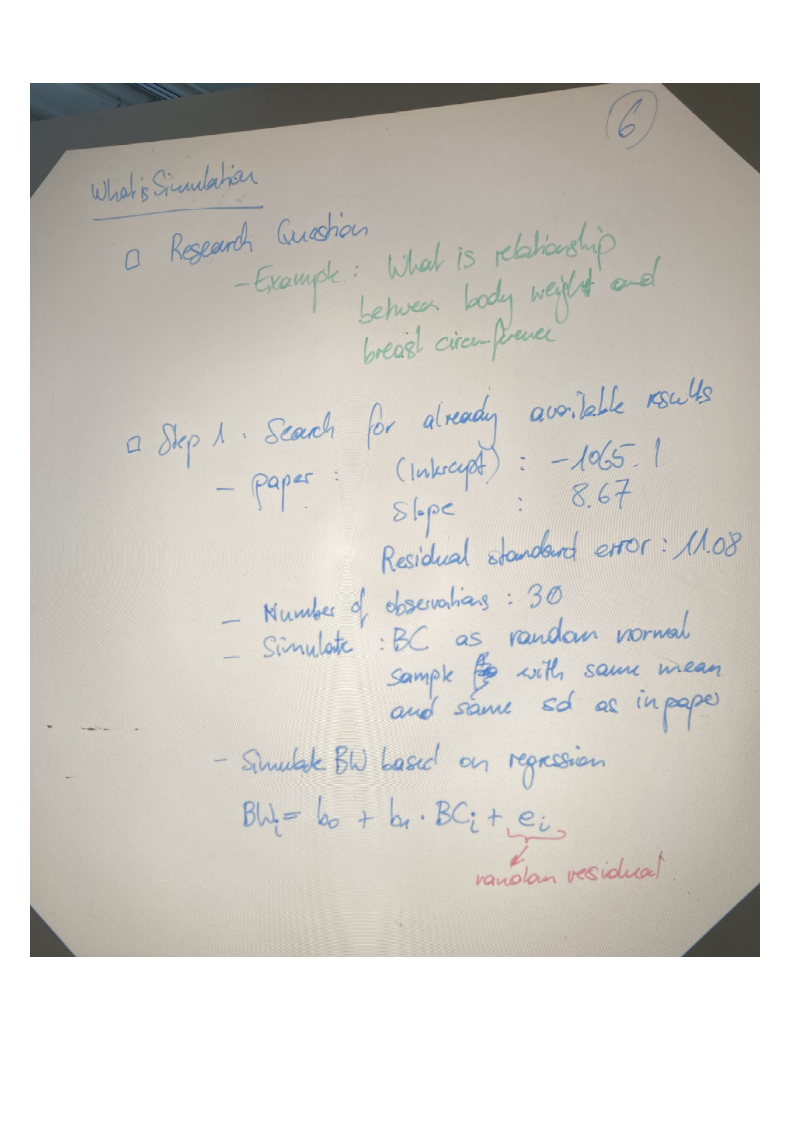 6
What is Simulation
□ Research Question
- Example : What is relationship
between body weight and
breast circumference
□ Step 1 : Search for already available results
- paper : (Intercept) : -1065.1
Slope : 8.67
Residual standard error : 11.08
- Number of observations : 30
- Simulate : BC as random normal
sample with same mean
and same sd as in paper
- Simulate BW based on regression
BWi = b0 + b1 · BCi + ei
random residual